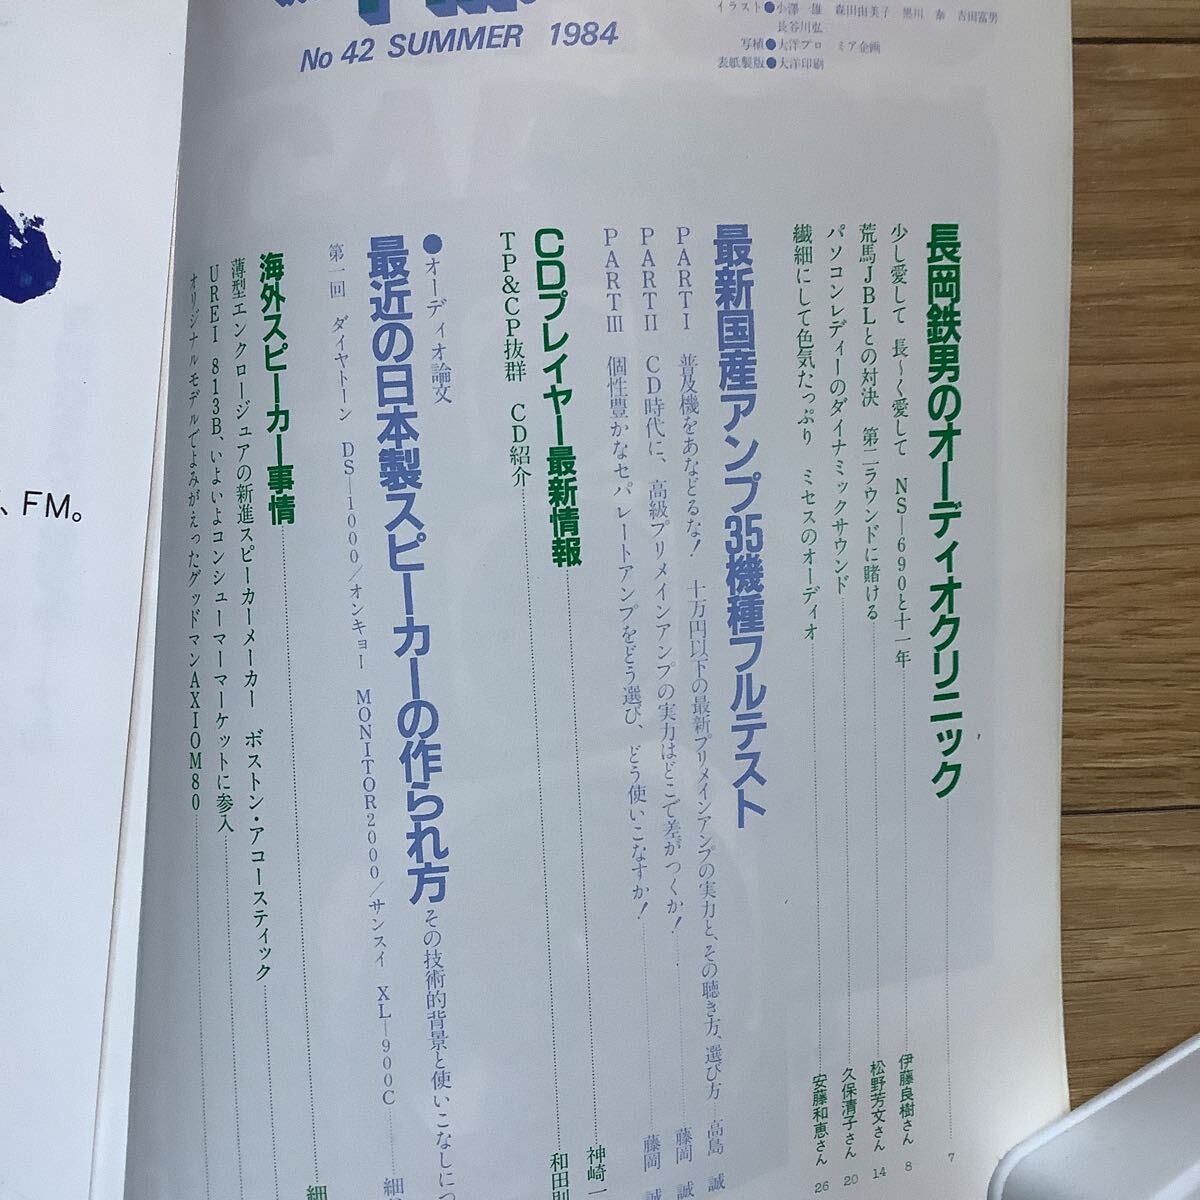 No 42 SUMMER 1984
イラスト●小澤一雄 森田由美子 黒川 泰 吉田富男
長谷川弘
写植●大洋プロ ミア企画
表紙製版●大洋印刷
長岡鉄男のオーディオクリニック 7
少し愛して 長〜く愛して NS—690と十一年 伊藤良樹さん 8
荒馬JBLとの対決 第二ラウンドに賭ける 松野芳文さん 14
パソコンレディーのダイナミックサウンド 久保清子さん 20
繊細にして色気たっぷり ミセスのオーディオ 安藤和恵さん 26
最新国産アンプ35機種フルテスト
PARTⅠ 普及機をあなどるな! 十万円以下の最新プリメインアンプの実力と、その聴き方、選び方 高島 誠
PARTⅡ CD時代に、高級プリメインアンプの実力はどこで差がつくか! 藤岡 誠
PARTⅢ 個性豊かなセパレートアンプをどう選び、どう使いこなすか! 藤岡 誠
CDプレイヤー最新情報 神崎一
TP&CP抜群 CD紹介 和田則
●オーディオ論文
最近の日本製スピーカーの作られ方 その技術的背景と使いこなしにつ
第一回 ダイヤトーン DS—1000/オンキョー MONITOR2000/サンスイ XL—900C 細
海外スピーカー事情 細
薄型エンクロージュアの新進スピーカーメーカー ボストン・アコースティック
UREI 813B、いよいよコンシューマーマーケットに参入
オリジナルモデルでよみがえったグッドマンAXIOM80
、FM。